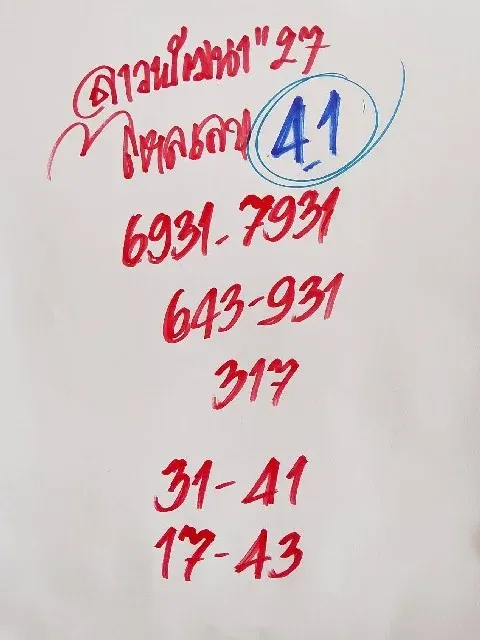 ลาวพัฒนา" 27
ไหลเลข 4-1
6931-7931
643-931
317
31-41
17-43